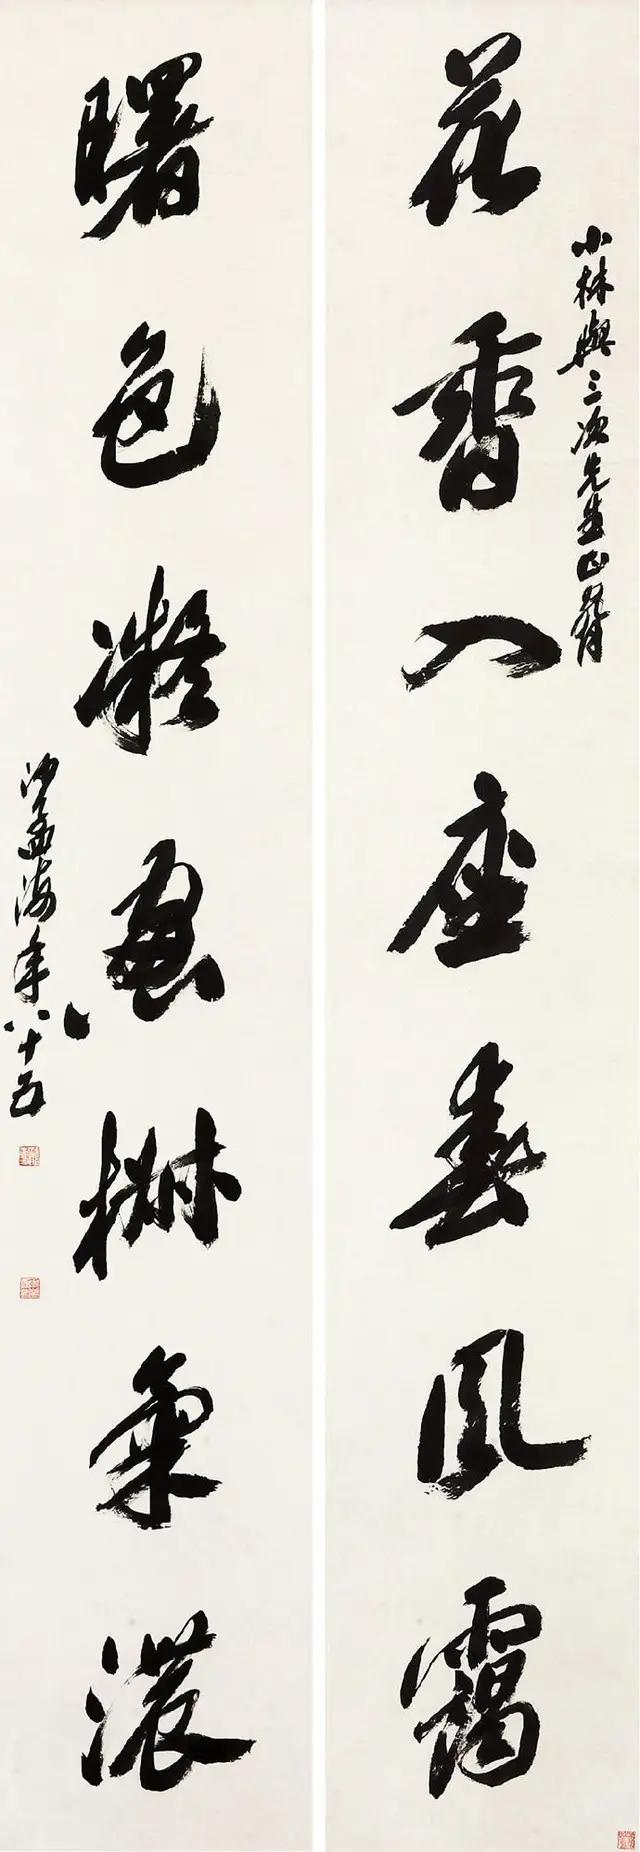 花香入座春風靄
小林與三次先生正
曙色凝窗氣濃
沙孟海年八十五